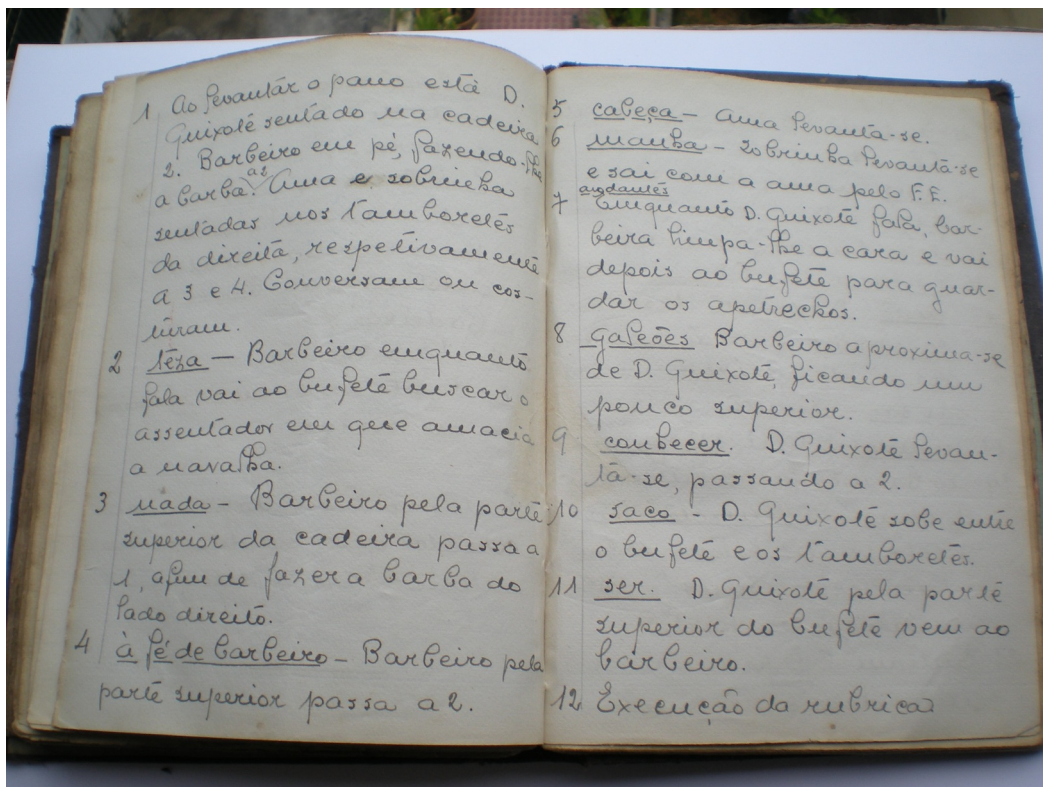 1 Ao levantár o pano está D.
Quixote sentado na cadeira
2. Barbeiro em pé, fazendo-lhe
a2
a barba. Ama e sobrinha
sentadas nos tamboretes
da direita, respetivamente
a 3 e 4. Conversam ou cos-
turam.
2 teza — Barbeiro emquanto
fala vai ao bufete buscar o
assentador em que amacia
a navalha.
3 nada — Barbeiro pela parte
superior da cadeira passa a
1, afim de fazer a barba do
lado direito.
4 à fé de barbeiro — Barbeiro pela
parte superior passa a 2.
5 cabeça — Ama levanta-se.
6 manha — Sobrinha levanta-se
e sai com a ama pelo F. E.
andantes
7 Emquanto D. Quixote fala, bar-
beiro limpa-lhe a cara e vai
depois ao bufete para guar-
dar os apetrechos.
8 galeões Barbeiro aproxima-se
de D. Quixote, ficando um
pouco superior.
9 conhecer. D. Quixote levan-
ta-se, passando a 2.
10 saco — D. Quixote sobe entre
o bufete e os tamboretes.
11 ser. D. Quixote pela parte
superior do bufete vem ao
barbeiro.
12 Execução da rubrica